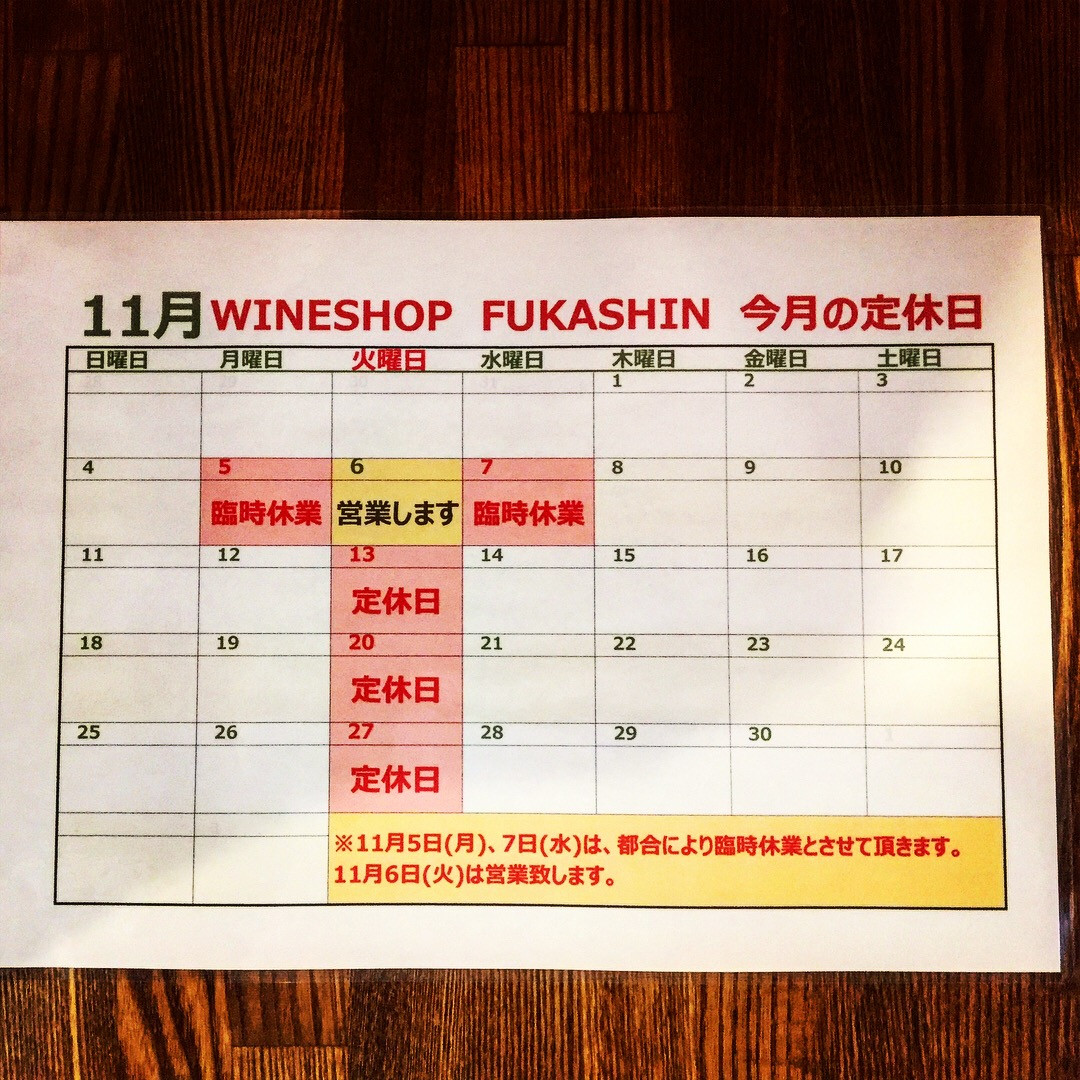 11月 WINESHOP FUKASHIN 今月の定休日
日曜日 月曜日 火曜日 水曜日 木曜日 金曜日 土曜日
28 29 30 31 1 2 3
4 5 6 7 8 9 10
臨時休業 営業します 臨時休業
11 12 13 14 15 16 17
定休日
18 19 20 21 22 23 24
定休日
25 26 27 28 29 30 1
定休日
※11月5日(月)、7日(水)は、都合により臨時休業とさせて頂きます。
11月6日(火)は営業致します。